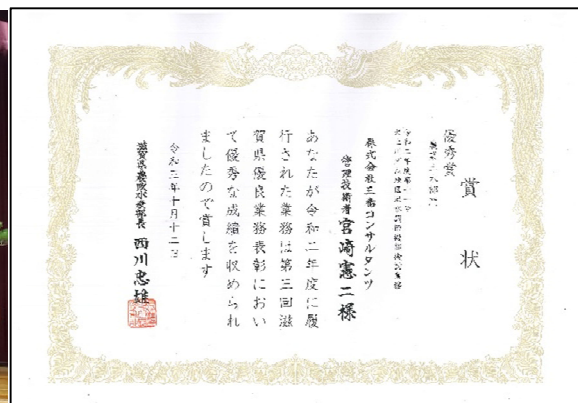 賞状
優秀賞
株式会社三春コンサルタンツ
管理技術者 宮崎憲二様
あなたが令和二年度に履
行された業務は第三回滋
賀県優良業務表彰におい
て優秀な成績を収められ
ましたので賞します
令和三年十月十二日
滋賀県農政水産部長 西川忠雄